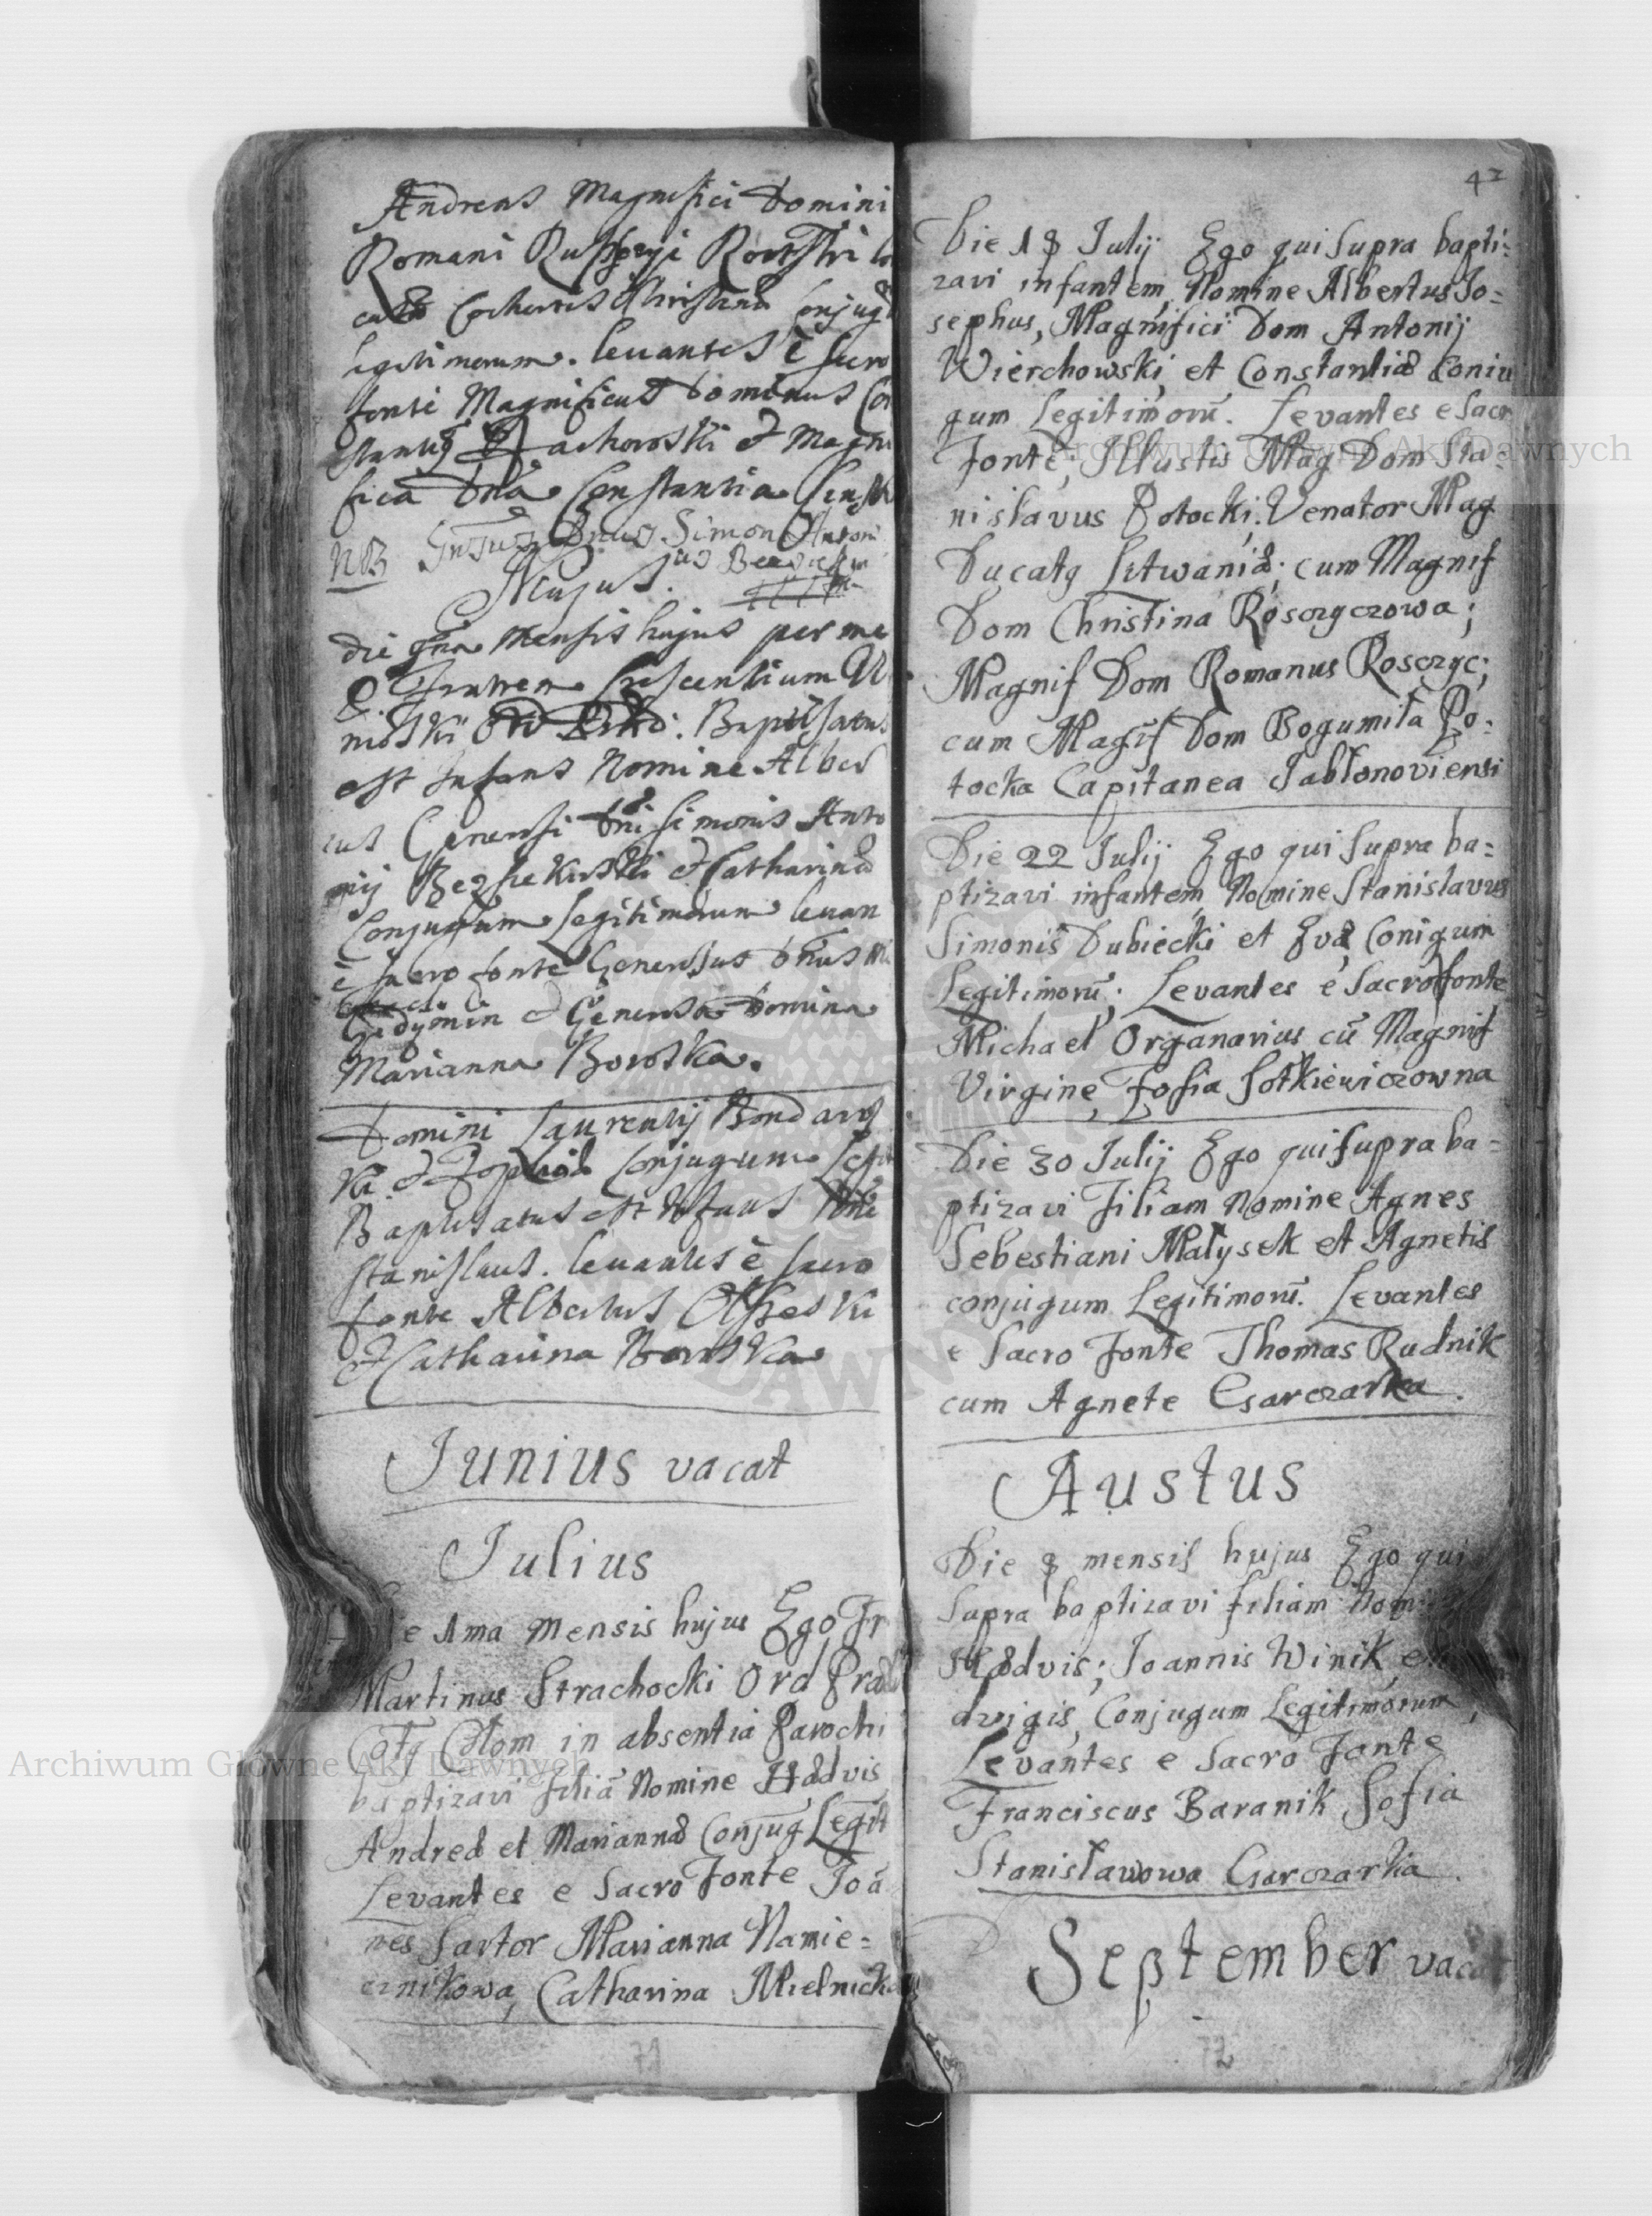 Andreas Magnifici Domini
Romani
Conjug
legitimorum. levantes è sacro
fonte Magnificus Dominus Con
stantis & Magni
fica Dna Constantia
NB Dnus Simon Antoni
ius
Hujus.
die mensis hujus per me
Fratrem Crescentium
Baptisatus
est Infans Nomine Alber
tus Generosi Dni Simonis Anto
nij & Catharinæ
Conjugum Legitimorum levan
è sacro fonte Generosus Dnus
Giedymin & Generosa Domina
Marianna Borowska.
Domini Laurentij Bondarow
ki & Zophiæ Conjugum Legit
Baptisatus est Infans Nne
Stanislaus. levantes è sacro
fonte Albertus Olszeski
& Catharina
Junius vacat
Julius
Die 1ma Mensis hujus Ego Fr
Martinus Strachocki Ord Præd
in absentia Parochi
baptizavi filiã Nomine Hædvis
Andreæ et Mariannæ Conjug Legit
Levantes e Sacro Fonte Joã
nes Sartor Marianna Namie=
snikowa, Catharina Mielnicka
71
42
Die 18 Julij Ego qui supra bapti=
zavi infantem, Nomine Albertus Jo=
sephus, Magnifici Dom Antonij
Wierchowski, et Constantiæ Coniu
gum Legitimorũ. Levantes e Sacr
Fonte, Illustris Mag Dom Sta=
nislavus Potocki, Venator Mag
Ducatq Litwaniæ; cum Magnif
Dom Christina Rosczyczowa;
Magnif Dom Romanus Rosczyc;
cum Magif Dom Bogumiła Po=
tocka Capitanea Jabłonoviensi
Die 22 Julij Ego qui supra ba=
ptizavi infantem, Nomine Stanislavus
Simonis Dubiecki et Evæ, Conigum
Legitimorũ. Levantes e Sacro fonte
Michael Organarius cũ Magnif
Virgine, Zofia Sołkiewiczowna
Die 30 Julij Ego qui supra ba=
ptizavi Filiam Nomine Agnes
Sebestiani Małysek et Agnetis
conjugum Legitimorũ. Levantes
e Sacro Fonte Thomas Rudnik
cum Agnete Garczarka.
Austus
Die 8 mensis hujus Ego qui
supra baptizavi filiam
Hædvis; Joannis Winik,
dvigis, Conjugum Legitimorum,
Levantes e Sacro Fonte
Franciscus Baranik Sofia
Stanisławowa Garczarka.
September vacat
72
Archiwum Główne Akt Dawnych
Archiwum Główne Akt Dawnych